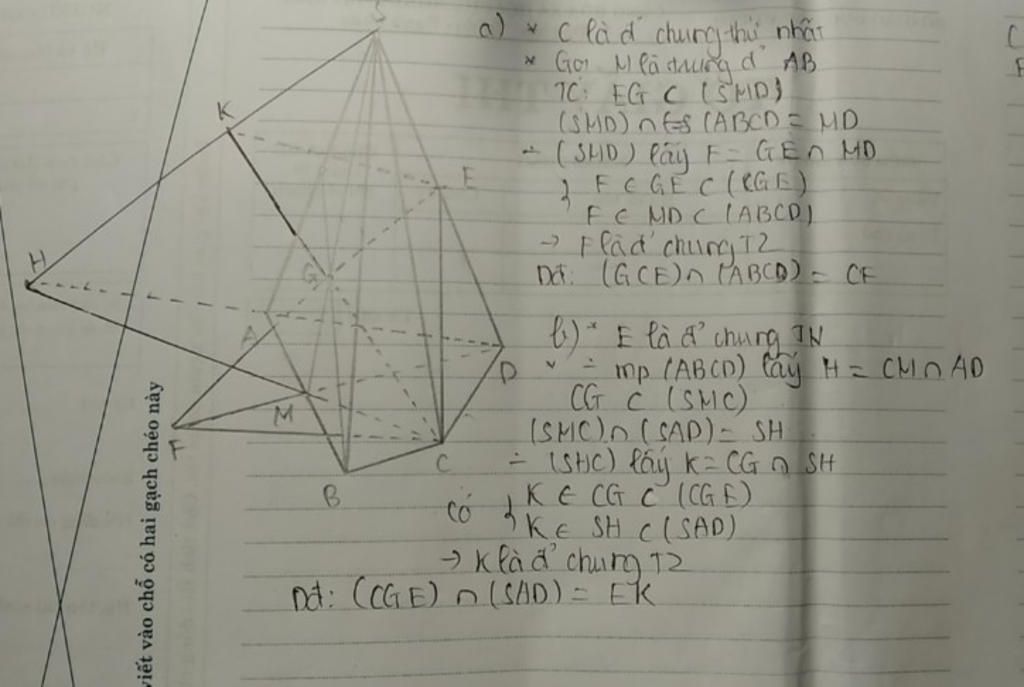 a) * C là đ' chung thứ nhất
* Gọi M là trung đ' AB
TC: EG ⊂ (SMD)
(SMD) ∩ (ABCD = MD
÷ (SMD) lấy F = GE ∩ MD
} F ∈ GE ⊂ (CGE)
F ∈ MD ⊂ (ABCD)
→ F là đ' chung T2
Dđt: (GCE) ∩ (ABCD) = CF
b) * E là đ' chung TN
* ÷ mp (ABCD) lấy H = CM ∩ AD
CG ⊂ (SMC)
(SMC) ∩ (SAD) = SH
÷ (SHC) lấy K = CG ∩ SH
có } K ∈ CG ⊂ (CGE)
K ∈ SH ⊂ (SAD)
→ K là đ' chung T2
Dđt: (CGE) ∩ (SAD) = EK
S
K
E
H
G
A
D
M
F
C
B
viết vào chỗ có hai gạch chéo này